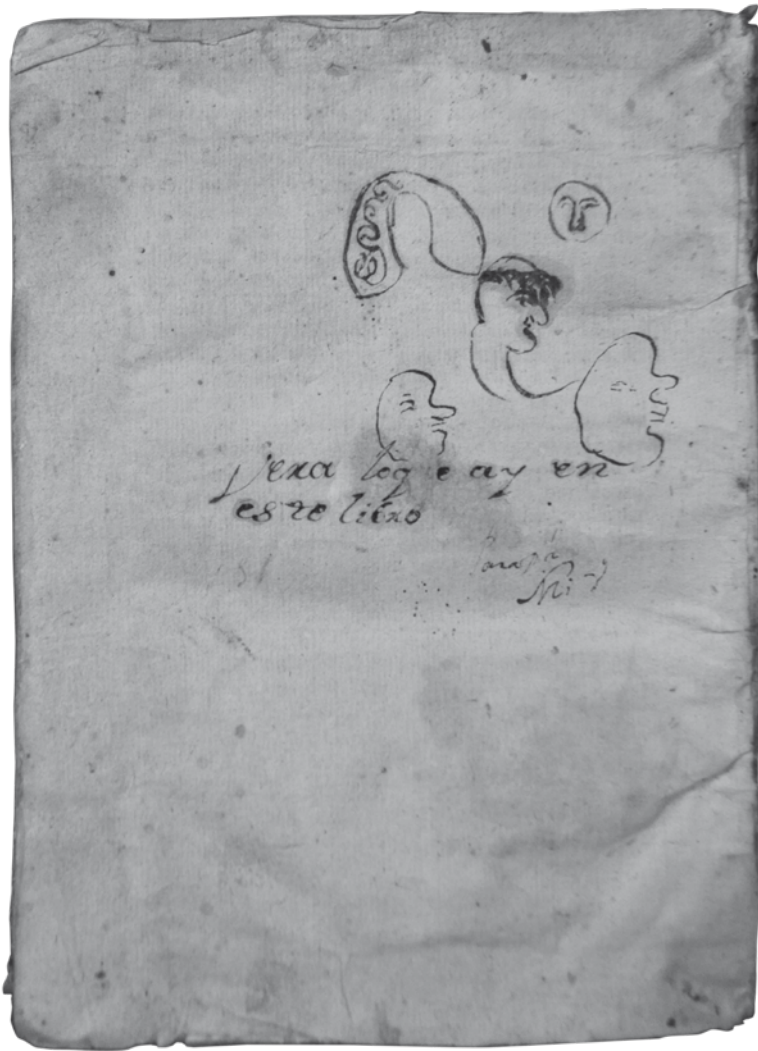 Vera loq̃ e ay en
este libro